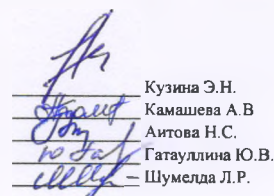 Кузина Э.Н.
Камашева А.В
Аитова Н.С.
Гатауллина Ю.В.
Шумелда Л.Р.